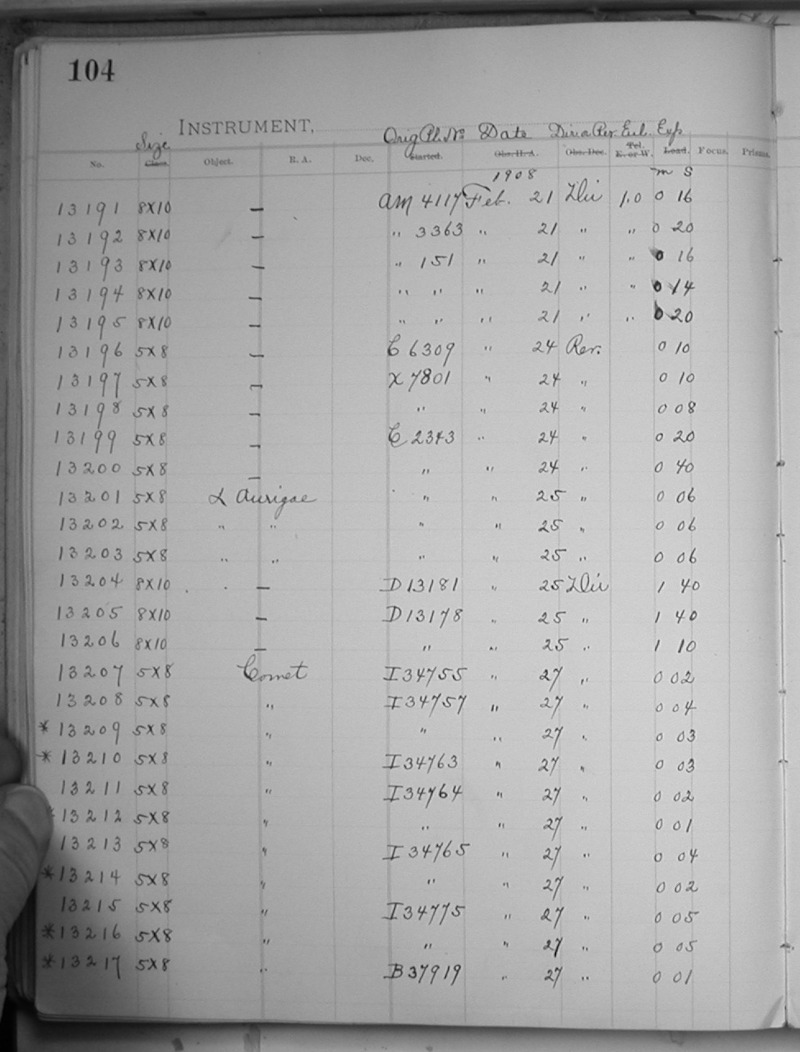 104
INSTRUMENT,
Size Orig Pl. No Date Dir or Rev. Enl. Exp.
No. Class. Object. R. A. Dec. Started. Obs. H. A. Obs. Dec. Tel. E. or W. Focus. Prisms.
1908 m s
13191 8X10 — AM 4117 Feb. 21 Dir 1.0 0 16
13192 8X10 — " 3363 " 21 " " 0 20
13193 8X10 — " 151 " 21 " " 0 16
13194 8X10 — " " " 21 " " 0 14
13195 8X10 — " " " 21 " " 0 20
13196 5X8 — C 6309 " 24 Rev. 0 10
13197 5X8 — X 7801 " 24 " 0 10
13198 5X8 — " " 24 " 0 08
13199 5X8 — C 2343 " 24 " 0 20
13200 5X8 — " " 24 " 0 40
13201 5X8 α Aurigae " " 25 " 0 06
13202 5X8 " " " " 25 " 0 06
13203 5X8 " " " 25 " 0 06
13204 8X10 — D 13181 " 25 Dir 1 40
13205 8X10 — D 13178 " 25 " 1 40
13206 8X10 — " " 25 " 1 10
13207 5X8 Comet I 34755 " 27 " 0 02
13208 5X8 " I 34757 " 27 " 0 04
* 13209 5X8 " " " 27 " 0 03
* 13210 5X8 " I 34763 " 27 " 0 03
13211 5X8 " I 34764 " 27 " 0 02
* 13212 5X8 " " " 27 " 0 01
13213 5X8 " I 34765 " 27 " 0 04
* 13214 5X8 " " " 27 " 0 02
13215 5X8 " I 34775 " 27 " 0 05
* 13216 5X8 " " " 27 " 0 05
* 13217 5X8 " B 37919 " 27 " 0 01